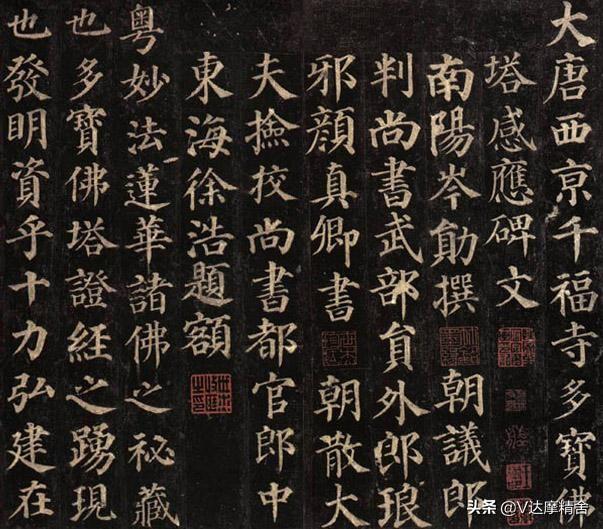 大唐西京千福寺多寶佛
塔感應碑文
南陽岑勛撰 朝議郎
判尚書武部員外郎琅
邪顏真卿書 朝散大
夫撿挍尚書都官郎中
東海徐浩題額
粵妙法蓮華諸佛之秘藏
也多寶佛塔證經之踴現
也發明資乎十力弘建在
头条 @V达摩精舍